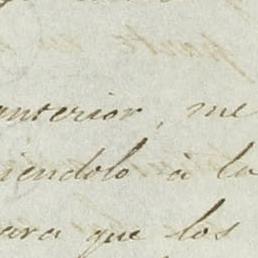 anterior, me
iendolo à la
ara que los